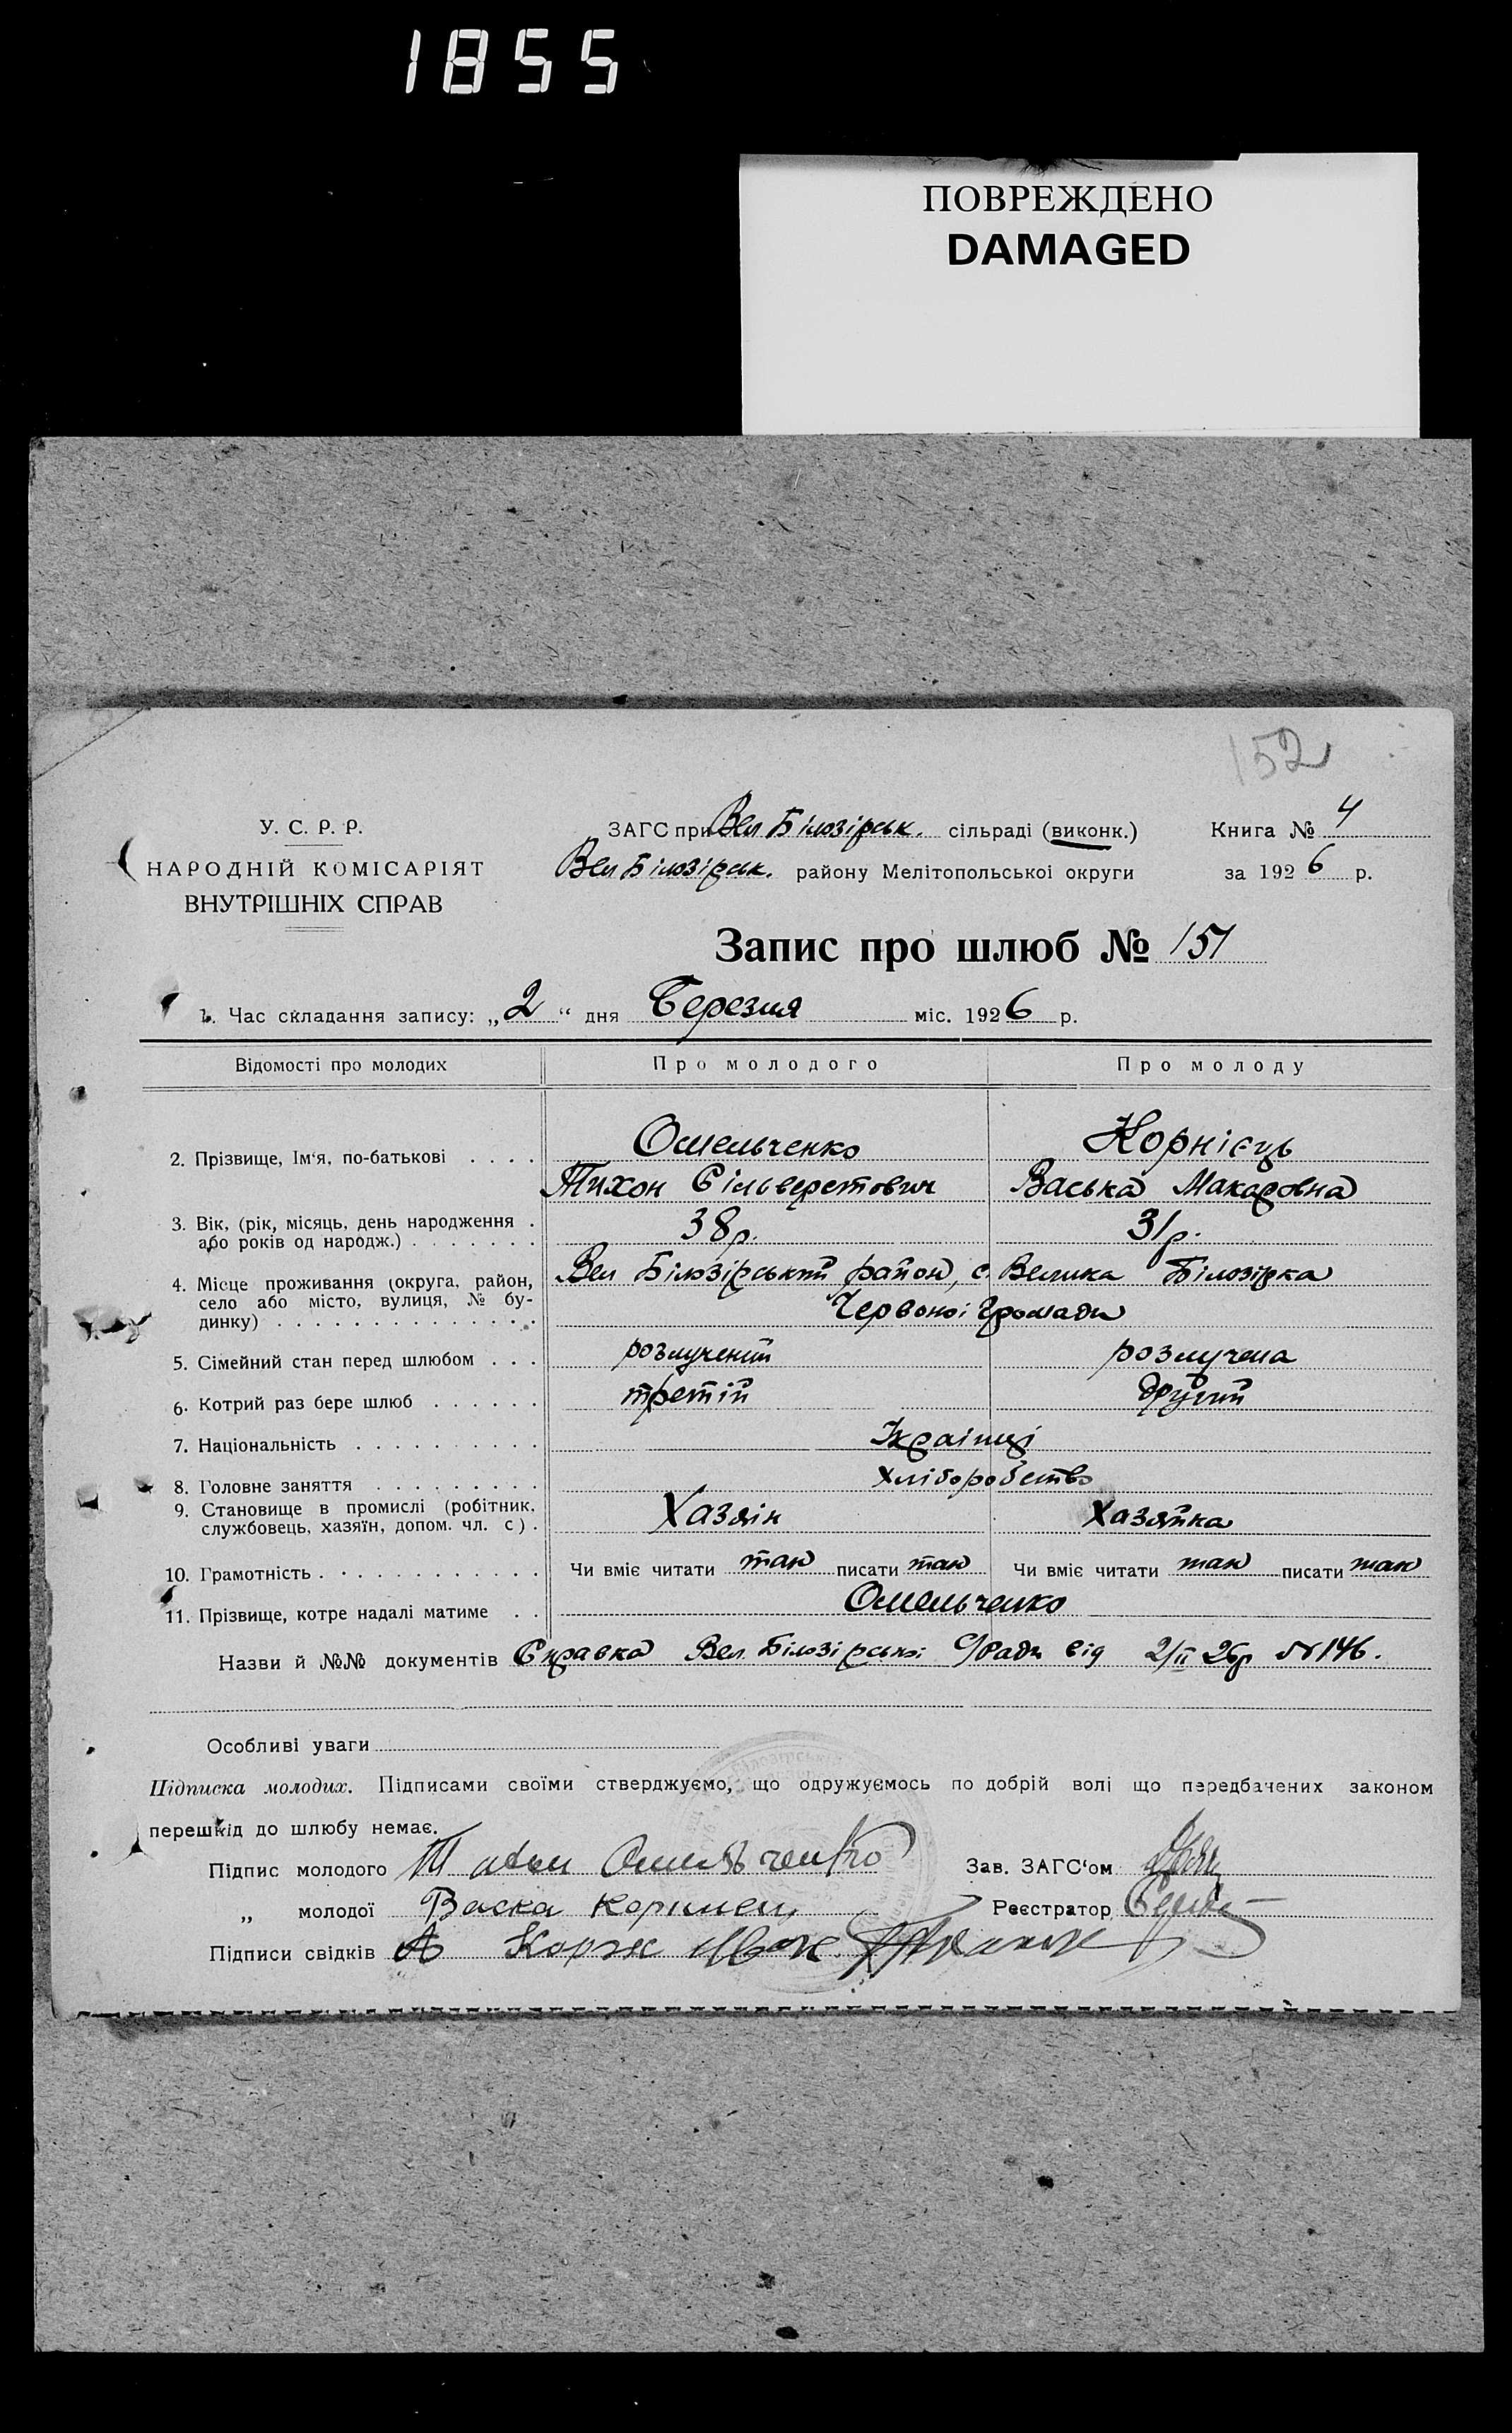 1855
ПОВРЕЖДЕНО
DAMAGED
152
У. С. Р. Р.
НАРОДНІЙ КОМІСАРІЯТ
ВНУТРІШНІХ СПРАВ
ЗАГС при Вел Білозірськ. сільраді (виконк.)
Вел Білозірськ. району Мелітопольської округи
Книга № 4
за 1926 р.
Запис про шлюб № 151
1. Час складання запису: „2“ дня Березня міс. 1926 р.
Відомості про молодих Про молодого Про молоду
2. Прізвище, Ім'я, по-батькові . . . . Омельченко Корнієць
Тихон Сільверстович Васька Макаровна
3. Вік, (рік, місяць, день народження . 38р. 31р.
або років од народж.) . . . . . . .
4. Місце проживання (округа, район, Вел Білозірський район, с. Велика Білозірка
село або місто, вулиця, № бу-
динку) . . . . . . . . . . . . . . Червоної Громади
5. Сімейний стан перед шлюбом . . . розлучений розлучена
6. Котрий раз бере шлюб . . . . . . третій другий
7. Національність . . . . . . . . . . Українці
8. Головне заняття . . . . . . . . . хліборобство
9. Становище в промислі (робітник, Хазяін Хазяйка
службовець, хазяїн, допом. чл. с) .
10. Грамотність . . . . . . . . . . . . Чи вміє читати так писати так Чи вміє читати так писати так
11. Прізвище, котре надалі матиме . . Омельченко
Назви й №№ документів Справка Вел. Білозірської С/Ради від 2/II 26р №146.
Особливі уваги
Підписка молодих. Підписами своїми стверджуємо, що одружуємось по добрій волі що передбачених законом
перешкід до шлюбу немає.
Підпис молодого Омельченко Зав. ЗАГС'ом
„ молодої Васка Корниец Реєстратор
Підписи свідків А Корж